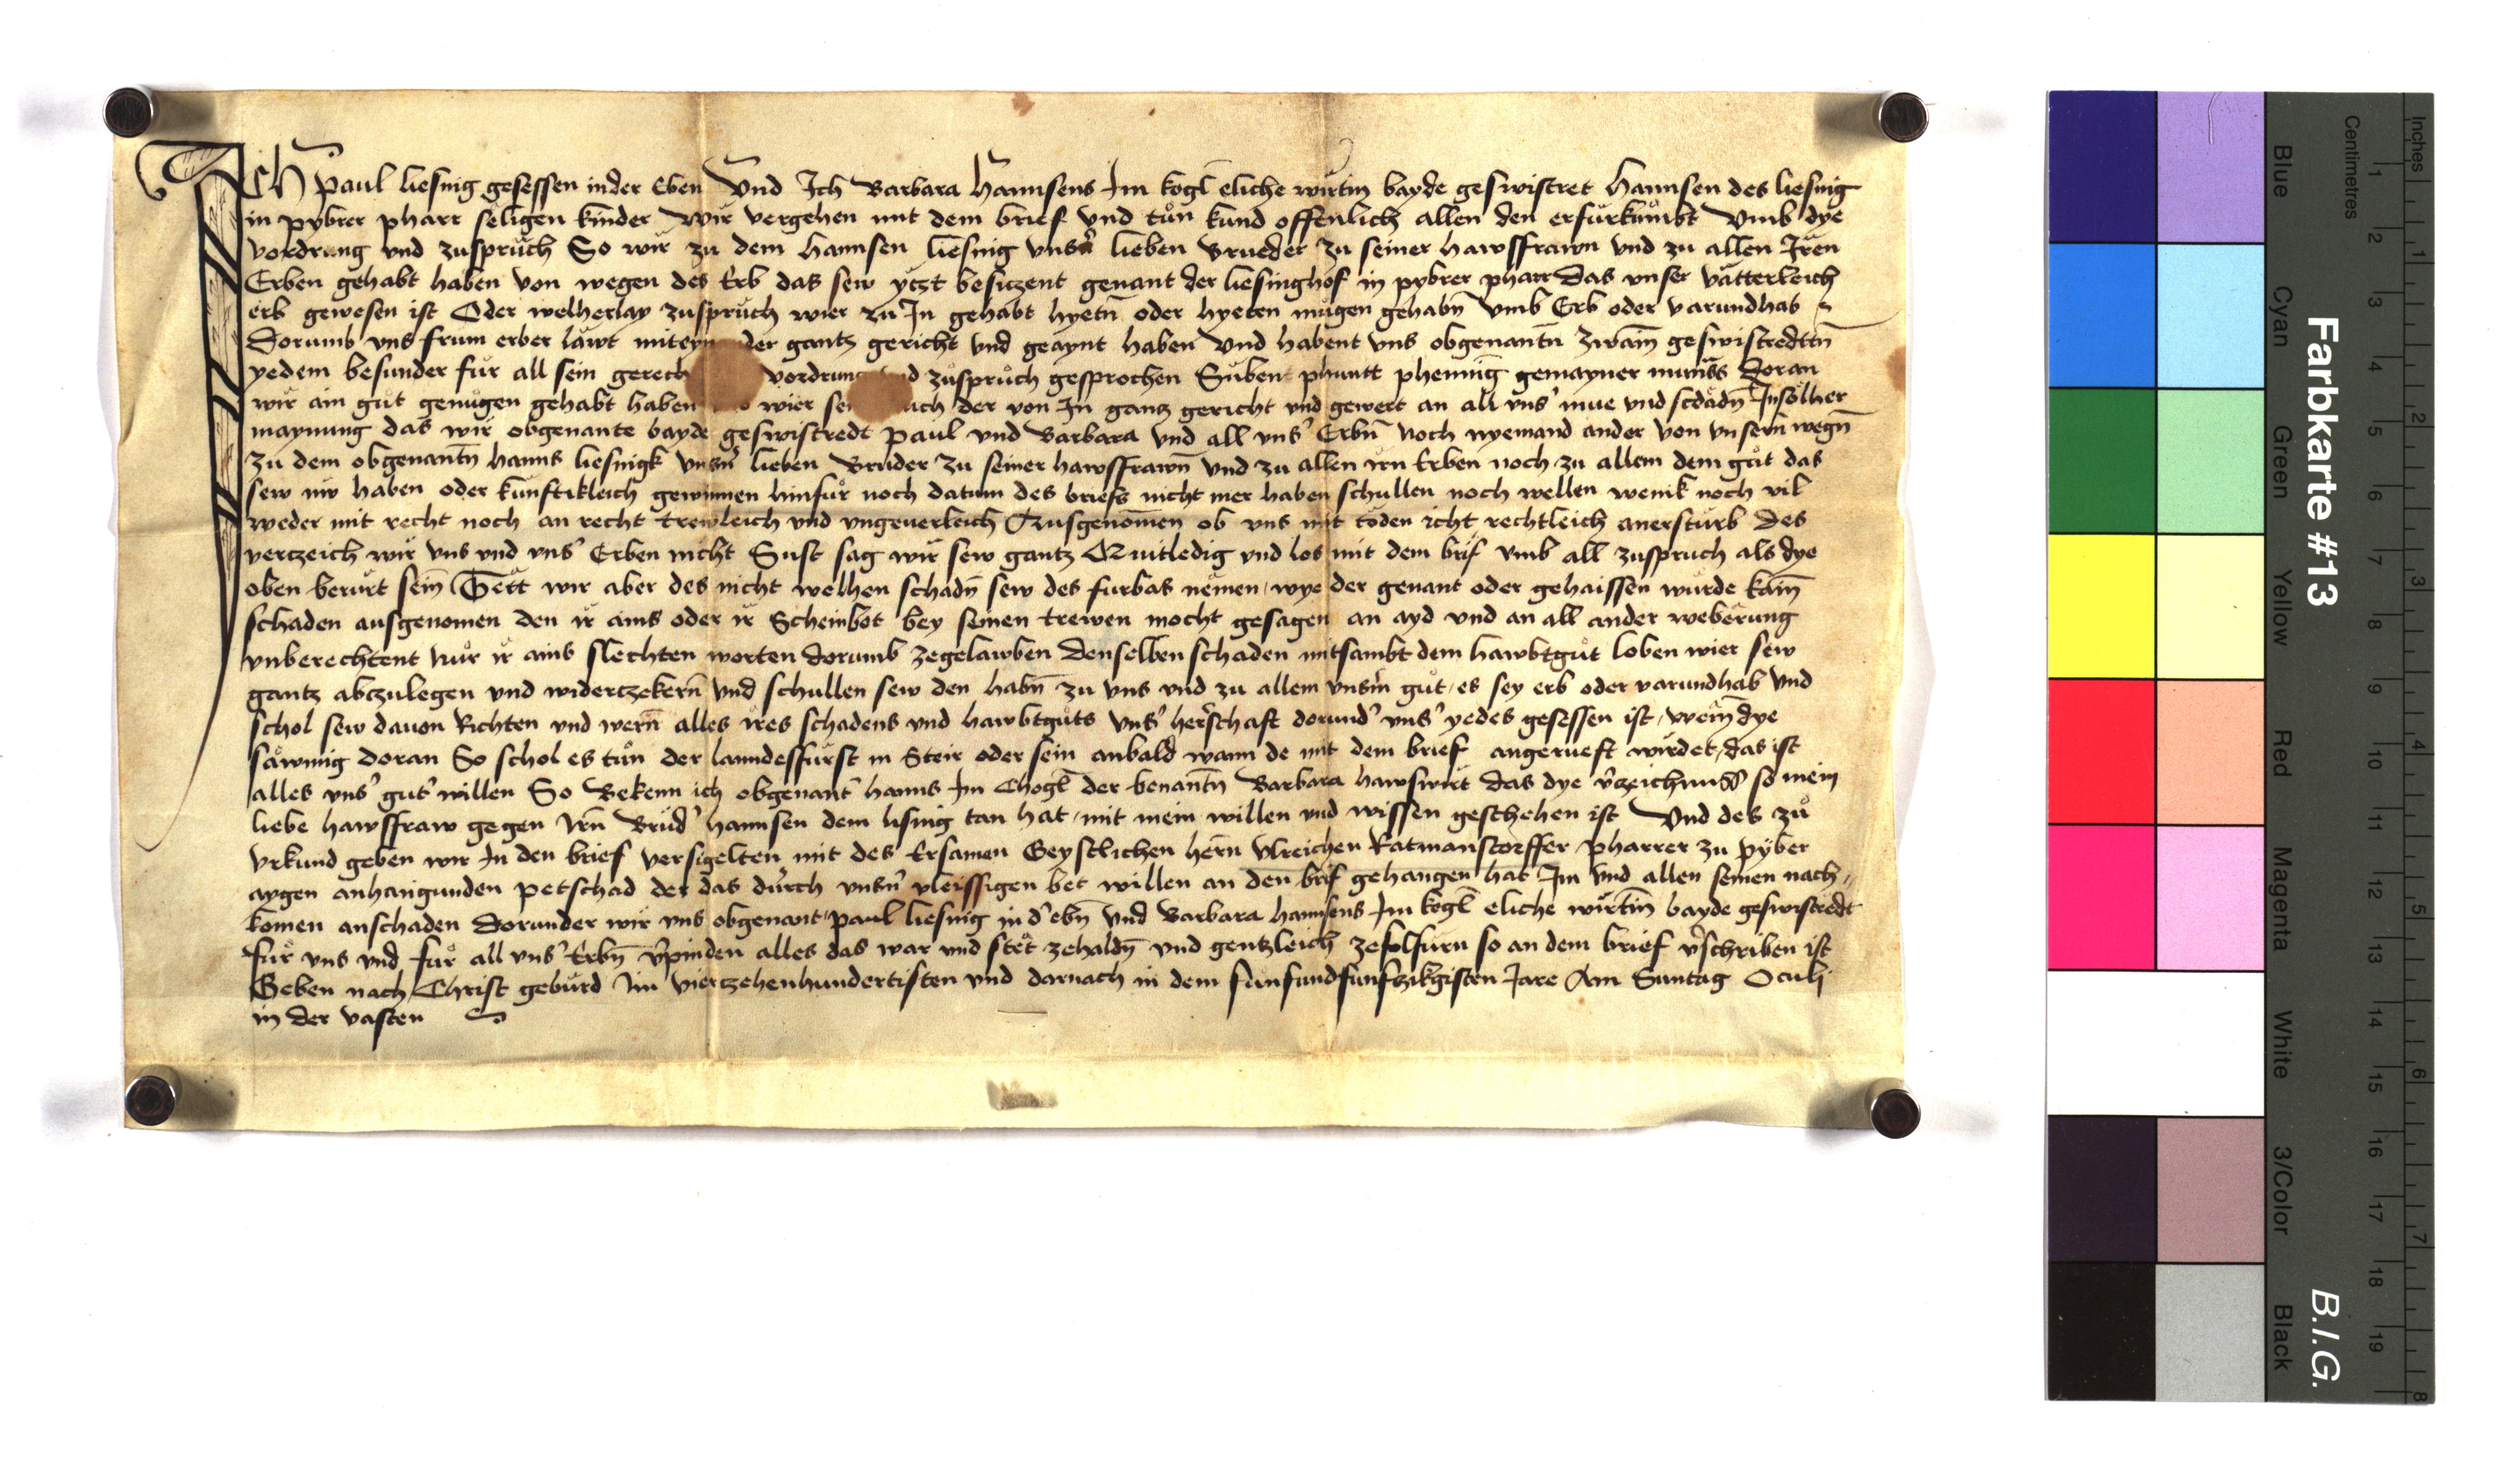 ICh Paul liesnig gesessen in der Eben Vnd Ich Barbara Hannsens Im kogl eliche wirtin bayde geswistret Hannsen des liesnig
in pybrer pharr seligen kinder Wir vergehen mit dem brief vnd tůn kund offenlich allen den er fürkümbt Vmb dye
vordrung vnd zuspruch So wir zu dem Hannsen liesnig vnsn̄ lieben Brueder zu seiner hawsffrawn vnd zu allen Iren
Erben gehabt haben von wegen des Erb das sew yczt besiczent genant der liesinghof in pybrer pharr Das vnser vätterleich
erb gewesen ist Oder welherlay zuspruch wier zu In gehabt hyetn̄ oder hyeten mügen gehabn̄ vmb Erb oder varundhab
Dorumb vns frum erber läwt mit der gantz gericht vnd geaynt haben Vnd habent vns obgenantn̄ zwain̄ geswistredtn̄
yedem besunder für all sein gerech vordrung zůsprůch gesprochen Süben phuntt phenniḡ gemayner münss Doran
wir ain gůt genügen gehabt haben wier der von In ganz gericht vnd gewert an all vns' mue vnd scdädn̄ In sölher
maynung das wir obgenante bayde geswistredt Paul vnd Barbara vnd all vns' Erbn̄ noch nyemand ander von vnsern wegn̄
zu dem obgenantn̄ Hanns liesnigk vnsn̄ lieben Bruder zu seiner hawsffrawn̄ vnd zu allen irn Erben noch zu allem dem gůt das
sew nw haben oder künftikleich gewinnen hinfür noch datum des briefs nicht mer haben schullen noch wellen wenik noch vil
weder mit recht noch an recht trewleich vnd vngeuerleich Ausgenomen ob vns mit töden icht rechtleich anersturb des
verczeich wir vns vnd vns' Erben nicht Sust sag wir sew gantz Quitledig vnd los mit dem brif vmb all zuspruch als dye
oben berürt sein Tett wir aber des nicht welhen schadn̄ sew des furbas nemen wye der genant oder gehaissen wurde kain̄
schaden ausgenomen den ir ains oder ir Scheinbot bey seinen trewen mocht gesagen an ayd vnd an all ander weberung
vnberechtent nůr ir ains slechten worten dorumb zegelawben Denselben schaden mitsambt dem hawbtgůt loben wier sew
gantz abczulegen vnd widerczekern̄ vnd schullen sew den habn̄ zu vns vnd zu allem vnsm̄ gůt es sey erb oder varundhab vnd
schol sew dauon Richten vnd wern̄ alles ires schadens vnd hawbtgůts vns' herschaft dorund' vns' yedes gesessen ist wem̄ dye
säwmig doran So schol es tůn der lanndesfürst in Steir oder sein anbald wann de mit dem brief angerueft wirdet das ist
alles vns' gut' willen So Bekenn ich obgenant' Hanns Im Chogl der benantn̄ Barbara hawswirt das dye v'zeichnuss so mein
liebe hawsffraw gegen irn Brůd' Hannsen dem lisnig tan hat mit mein willen vnd wissen geschehen ist Vnd des zů
Vrkund geben wir In den brief versigelten mit des Ersamen Geystlichen hern̄ Vlreichen Ratmanstorffer Pharrer zu Pyber
aygen anhangunden Petschad der das durch vnsn̄ vleissigen bet willen an den brif gehangen hat Im vnd allen seinen nach
komen anschaden Dorunder wir vns obgenant Paul liesnig in d' ebn̄ Vnd Barbara Hannsens Im kogl eliche wirtin̄ bayde geswistredt
für vns vnd für all vns' Erbn̄ v'pinden alles das war vnd stet zehaldn̄ vnd gentzleich zefolfürn so an dem brief v'schriben ist
Geben nach Christ gebürd Im vierzehenhundertisten vnd darnach in dem fünfundfunfczikgisten Jare Am Suntag Oculi
in der vasten
Farbkarte #13
B.I.G.
Blue
Cyan
Green
Yellow
Red
Magenta
White
3/Color
Black
Centimetres
1 2 3 4 5 6 7 8 9 10 11 12 13 14 15 16 17 18 19
Inches
1 2 3 4 5 6 7 8